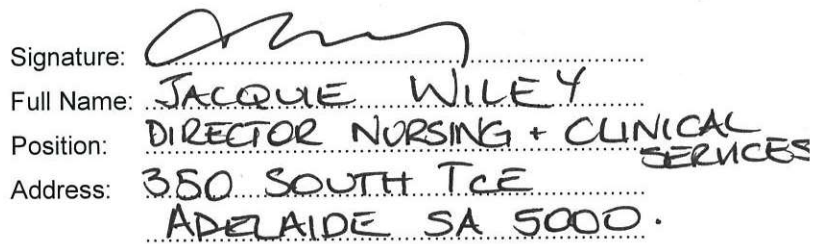 Signature:
Full Name: JACQUIE WILEY
Position: DIRECTOR NURSING + CLINICAL
SERVICES
Address: 350 SOUTH TCE
ADELAIDE SA 5000.